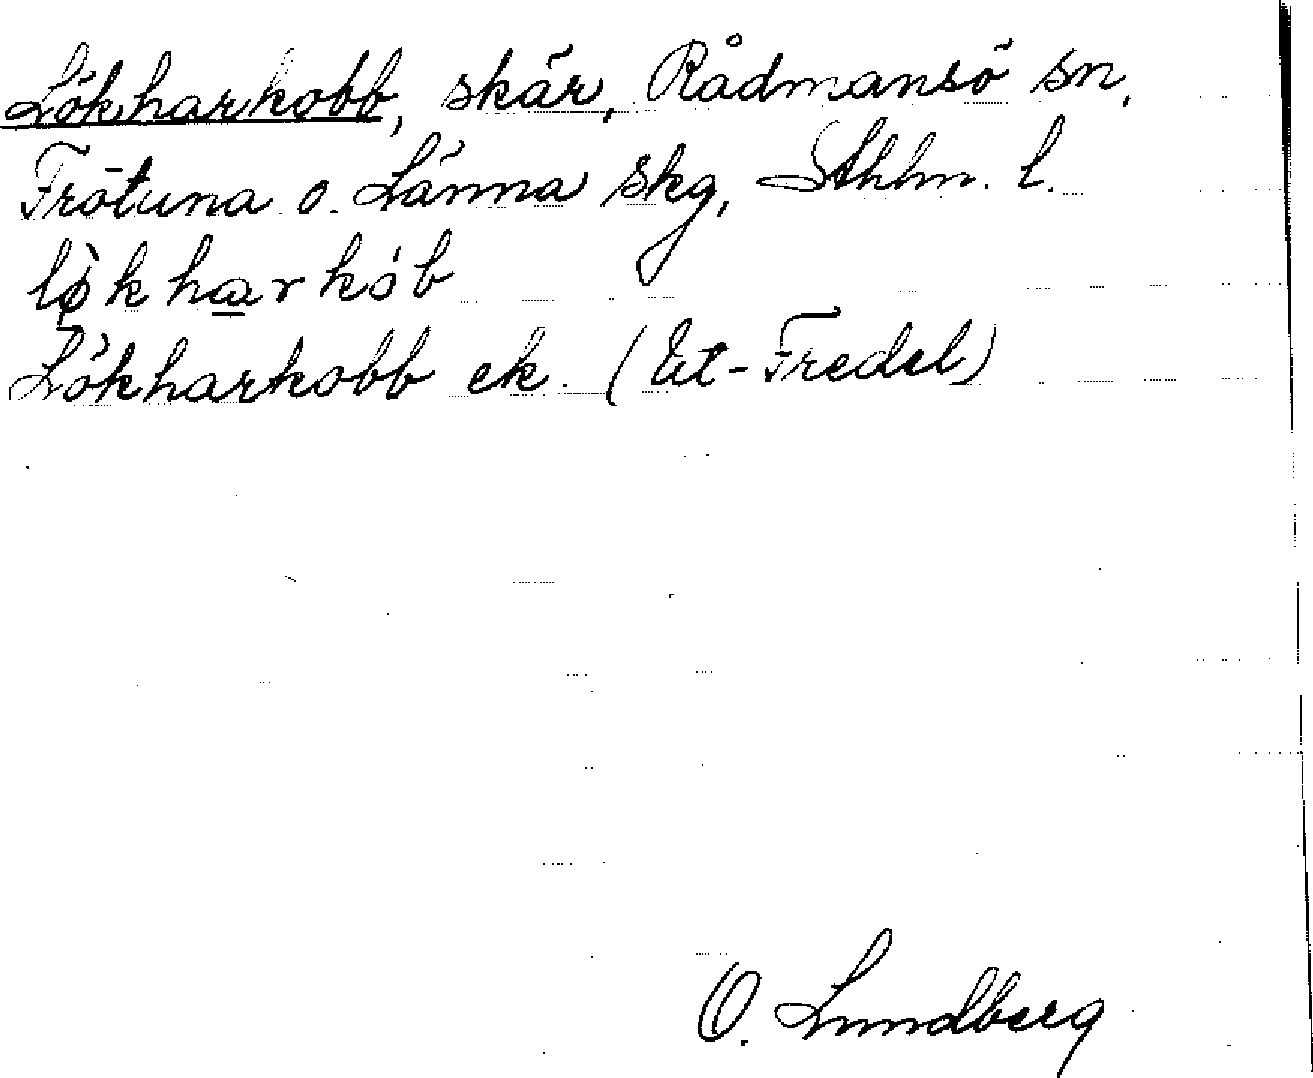 Lökharkobb, skär, Rådmansö sn,
Frötuna o. Länna skg, Sthlm. l.
lö̀kharkòb
Lökharkobb ek. (Ut-Fredel)
O. Lundberg